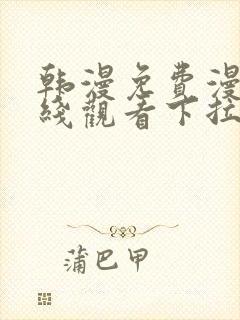 韩漫免費漫
綫觀看下拉
蒲巴甲